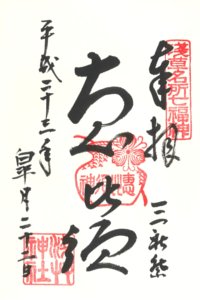 浅草名所七福神
奉拝
恵比須
平成二十三年
皐月二十二日
浅草神社